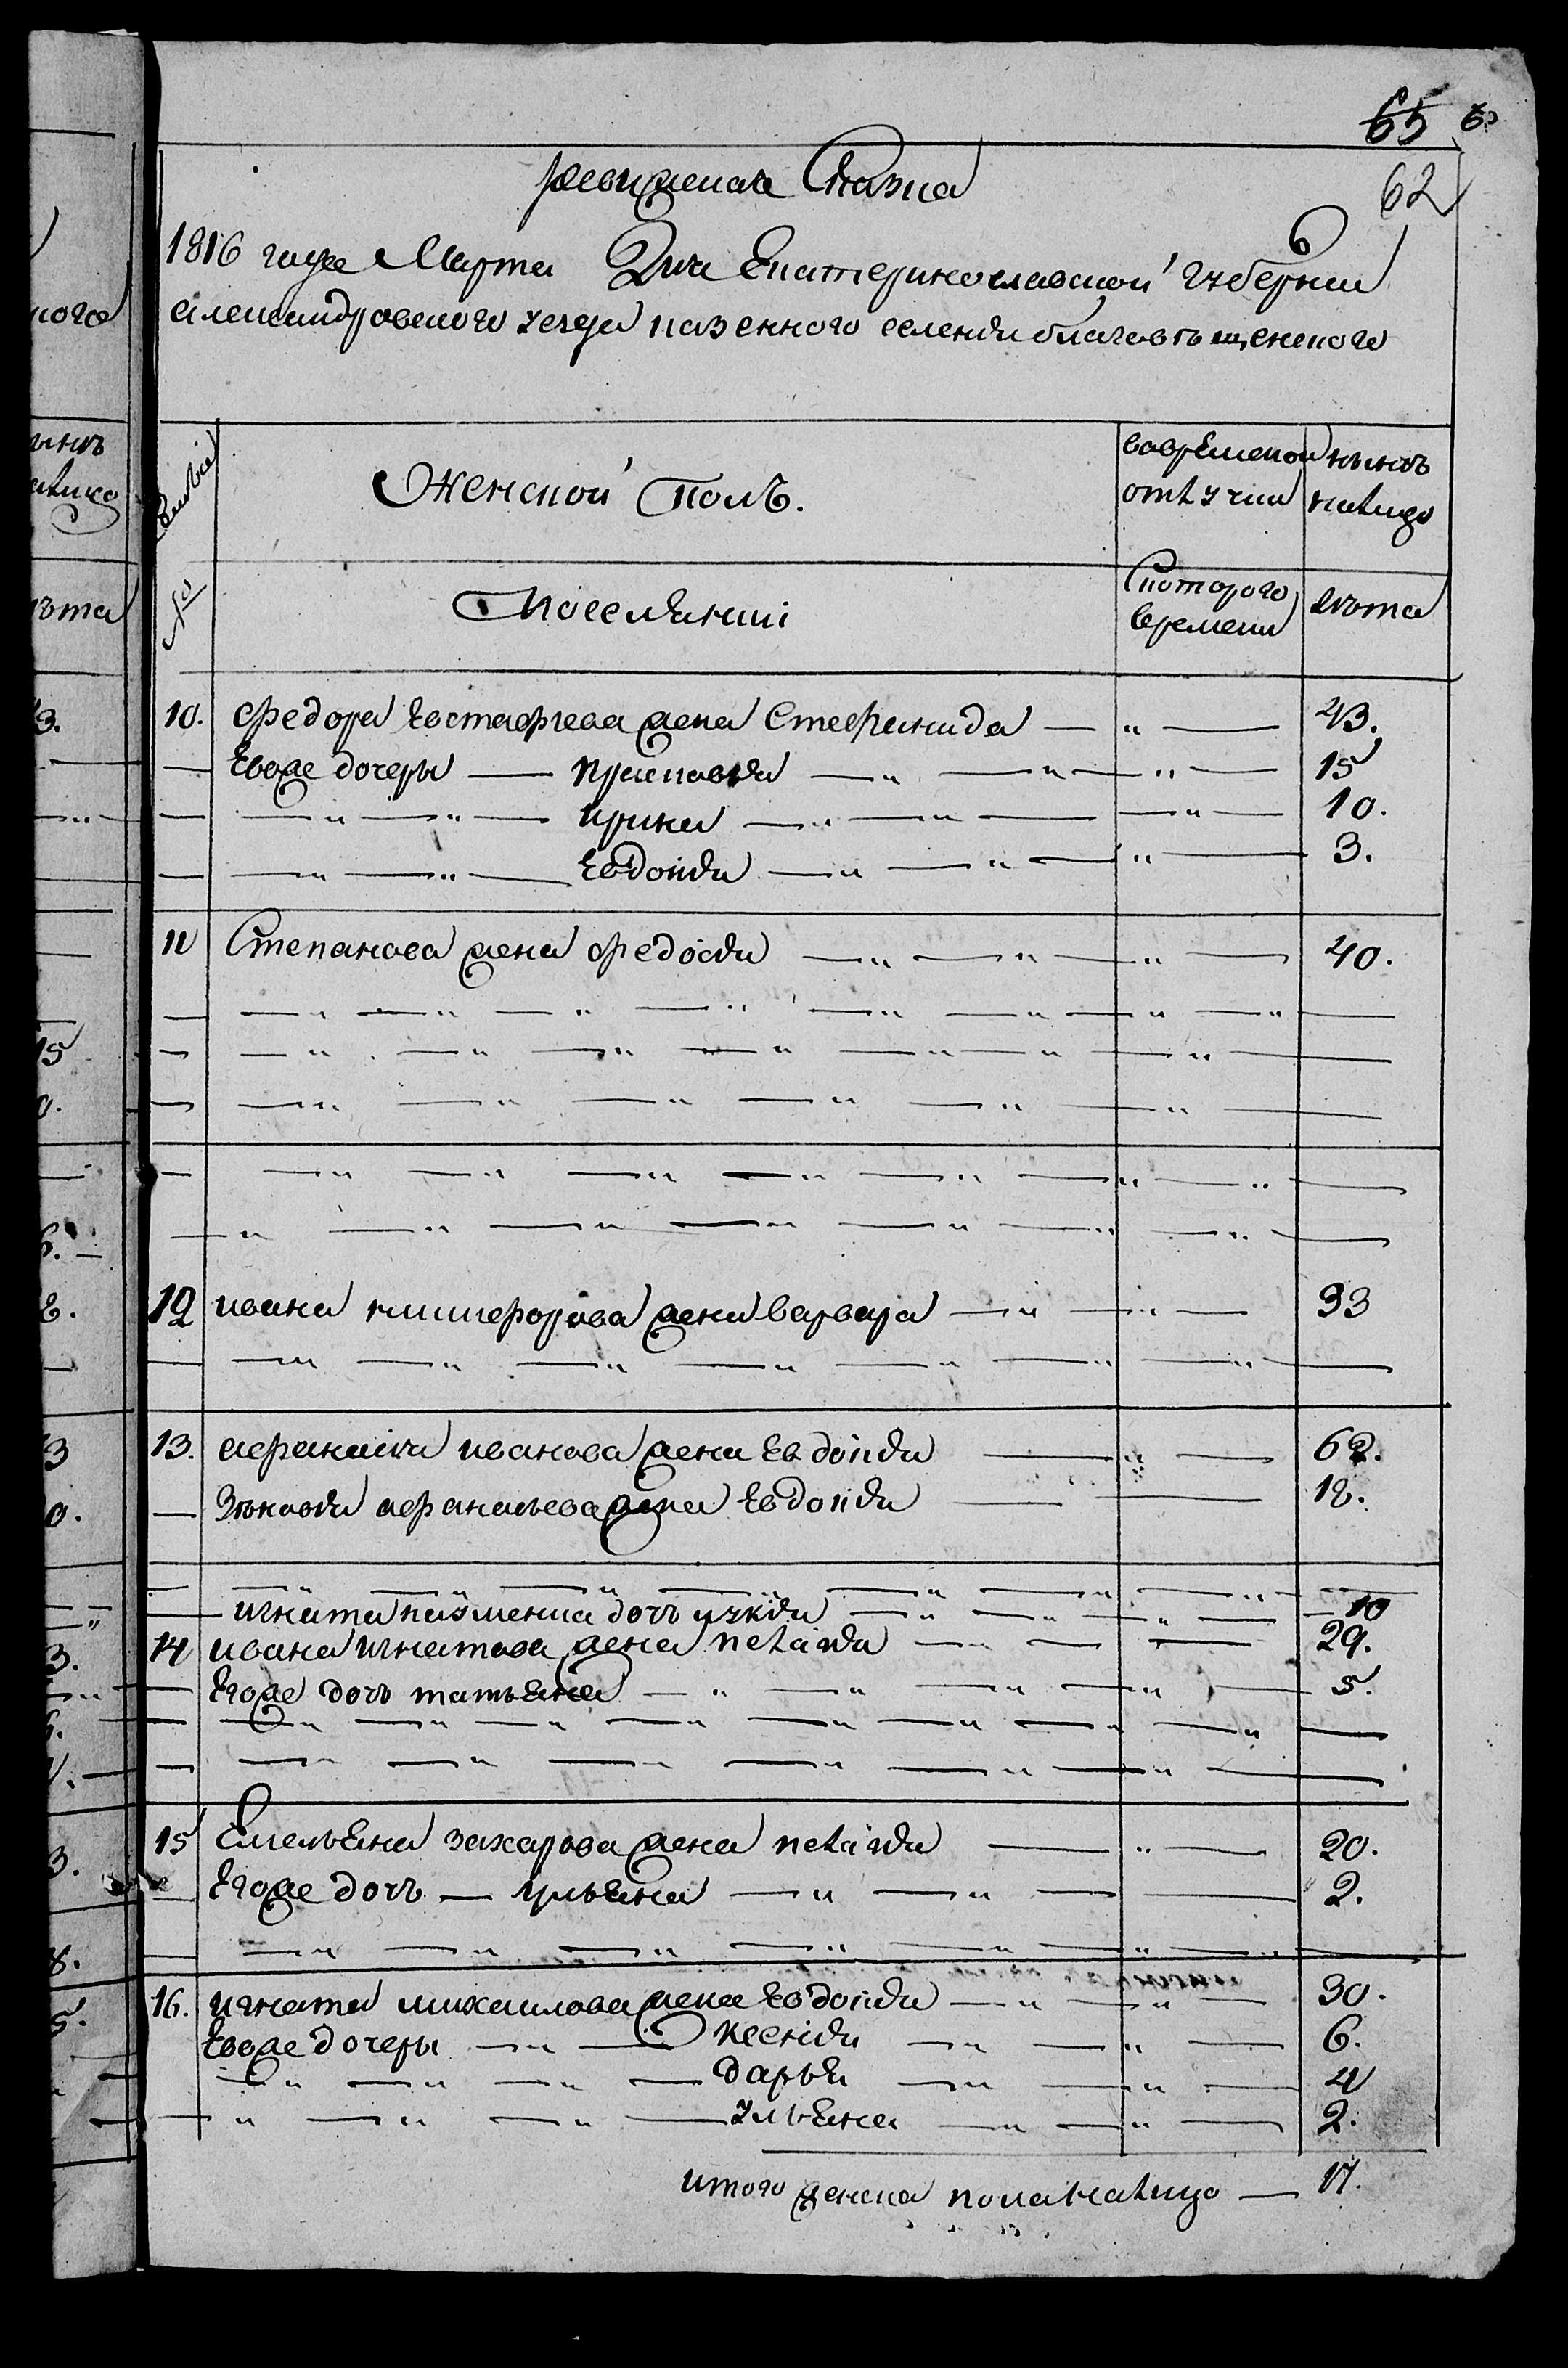 65
62
ревижская Сказка
1816 года Марта Дня Екатеринославской губернии
александровского уезда казенного селения благовѣщенского
Семьи
Женской Полъ.
вовременой отлучки
нынѣ налицо
№
Поселянки
Скоторого времени
лѣта
10. Федора Евстафиева жена Стефанида — " — 43.
— Евоже дочеры — Прасковия — " — " — " — 15
— — " — " — ирина — " — " — — " — 10.
— — " — " — Евдокия — " — " — " — 3.
11 Степанова жена Федосия — " — " — " — 40.
12 ивана никифорова жена варвара — " — " — 33
13. афанасия иванова жена Евдокия — " — 62.
— Зѣновия афанасьева жена Евдокия — — 18.
— игната кузменка дочъ — " — " — " — 10
14 ивана игнатова жена пелагия — " — — — 29.
— Егоже дочъ татьяна — " — " — " — " — 5.
15 Емельяна захарова жена пелагия — " — 20.
— Егоже дочъ — ульяна — " — " — — 2.
16. игната михаилова жена Евдокия — " — " — 30.
Евоже дочеры — " — Ксения — " — " — 6.
— " — " — " — дарья — " — " — 4
— " — " — " — Ульяна — " — " — 2.
итого женска пола налицо — 17.